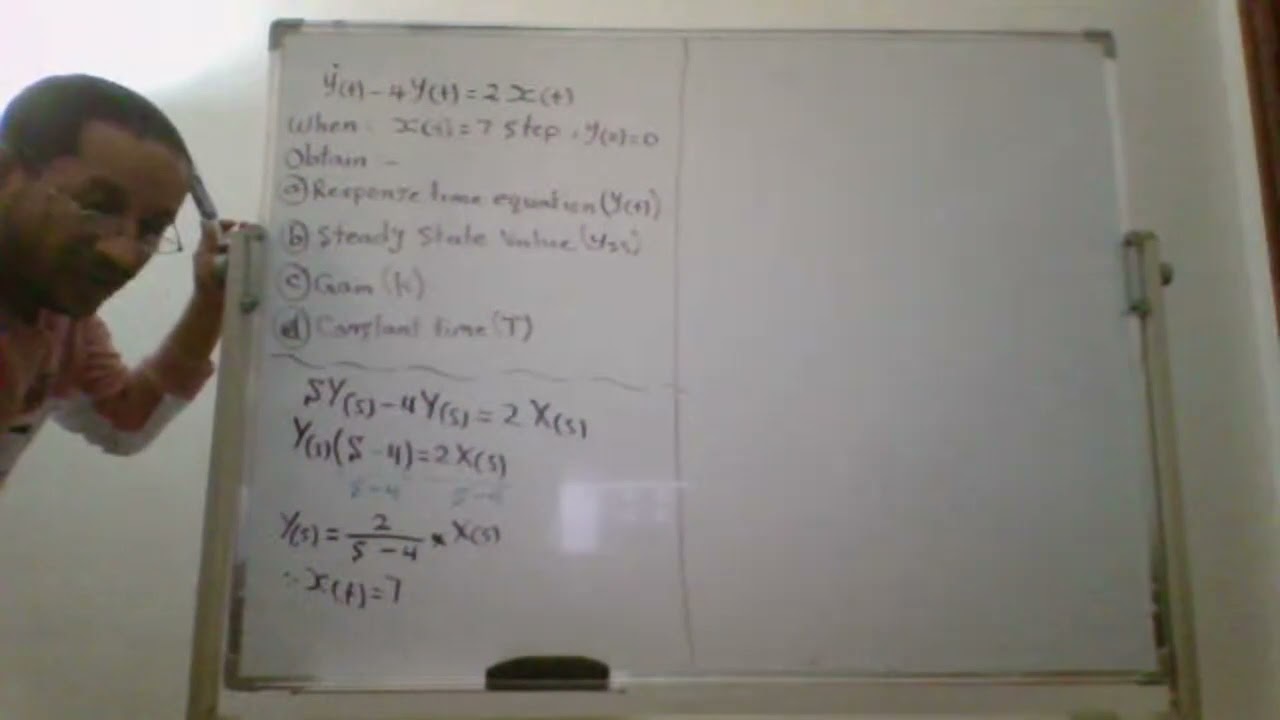 ẏ(t) - 4y(t) = 2x(t)
When: x(s) = 7 step, y(0)=0
Obtain -
(a) Response time equation (y(t))
(b) Steady State Value (yss)
(c) Gain (k)
(d) Constant time (T)
SY(s) - 4Y(s) = 2X(s)
Y(s)(S - 4) = 2X(s)
S-4 S-4
Y(s) = 2/(S - 4) * X(s)
∵ x(t) = 7